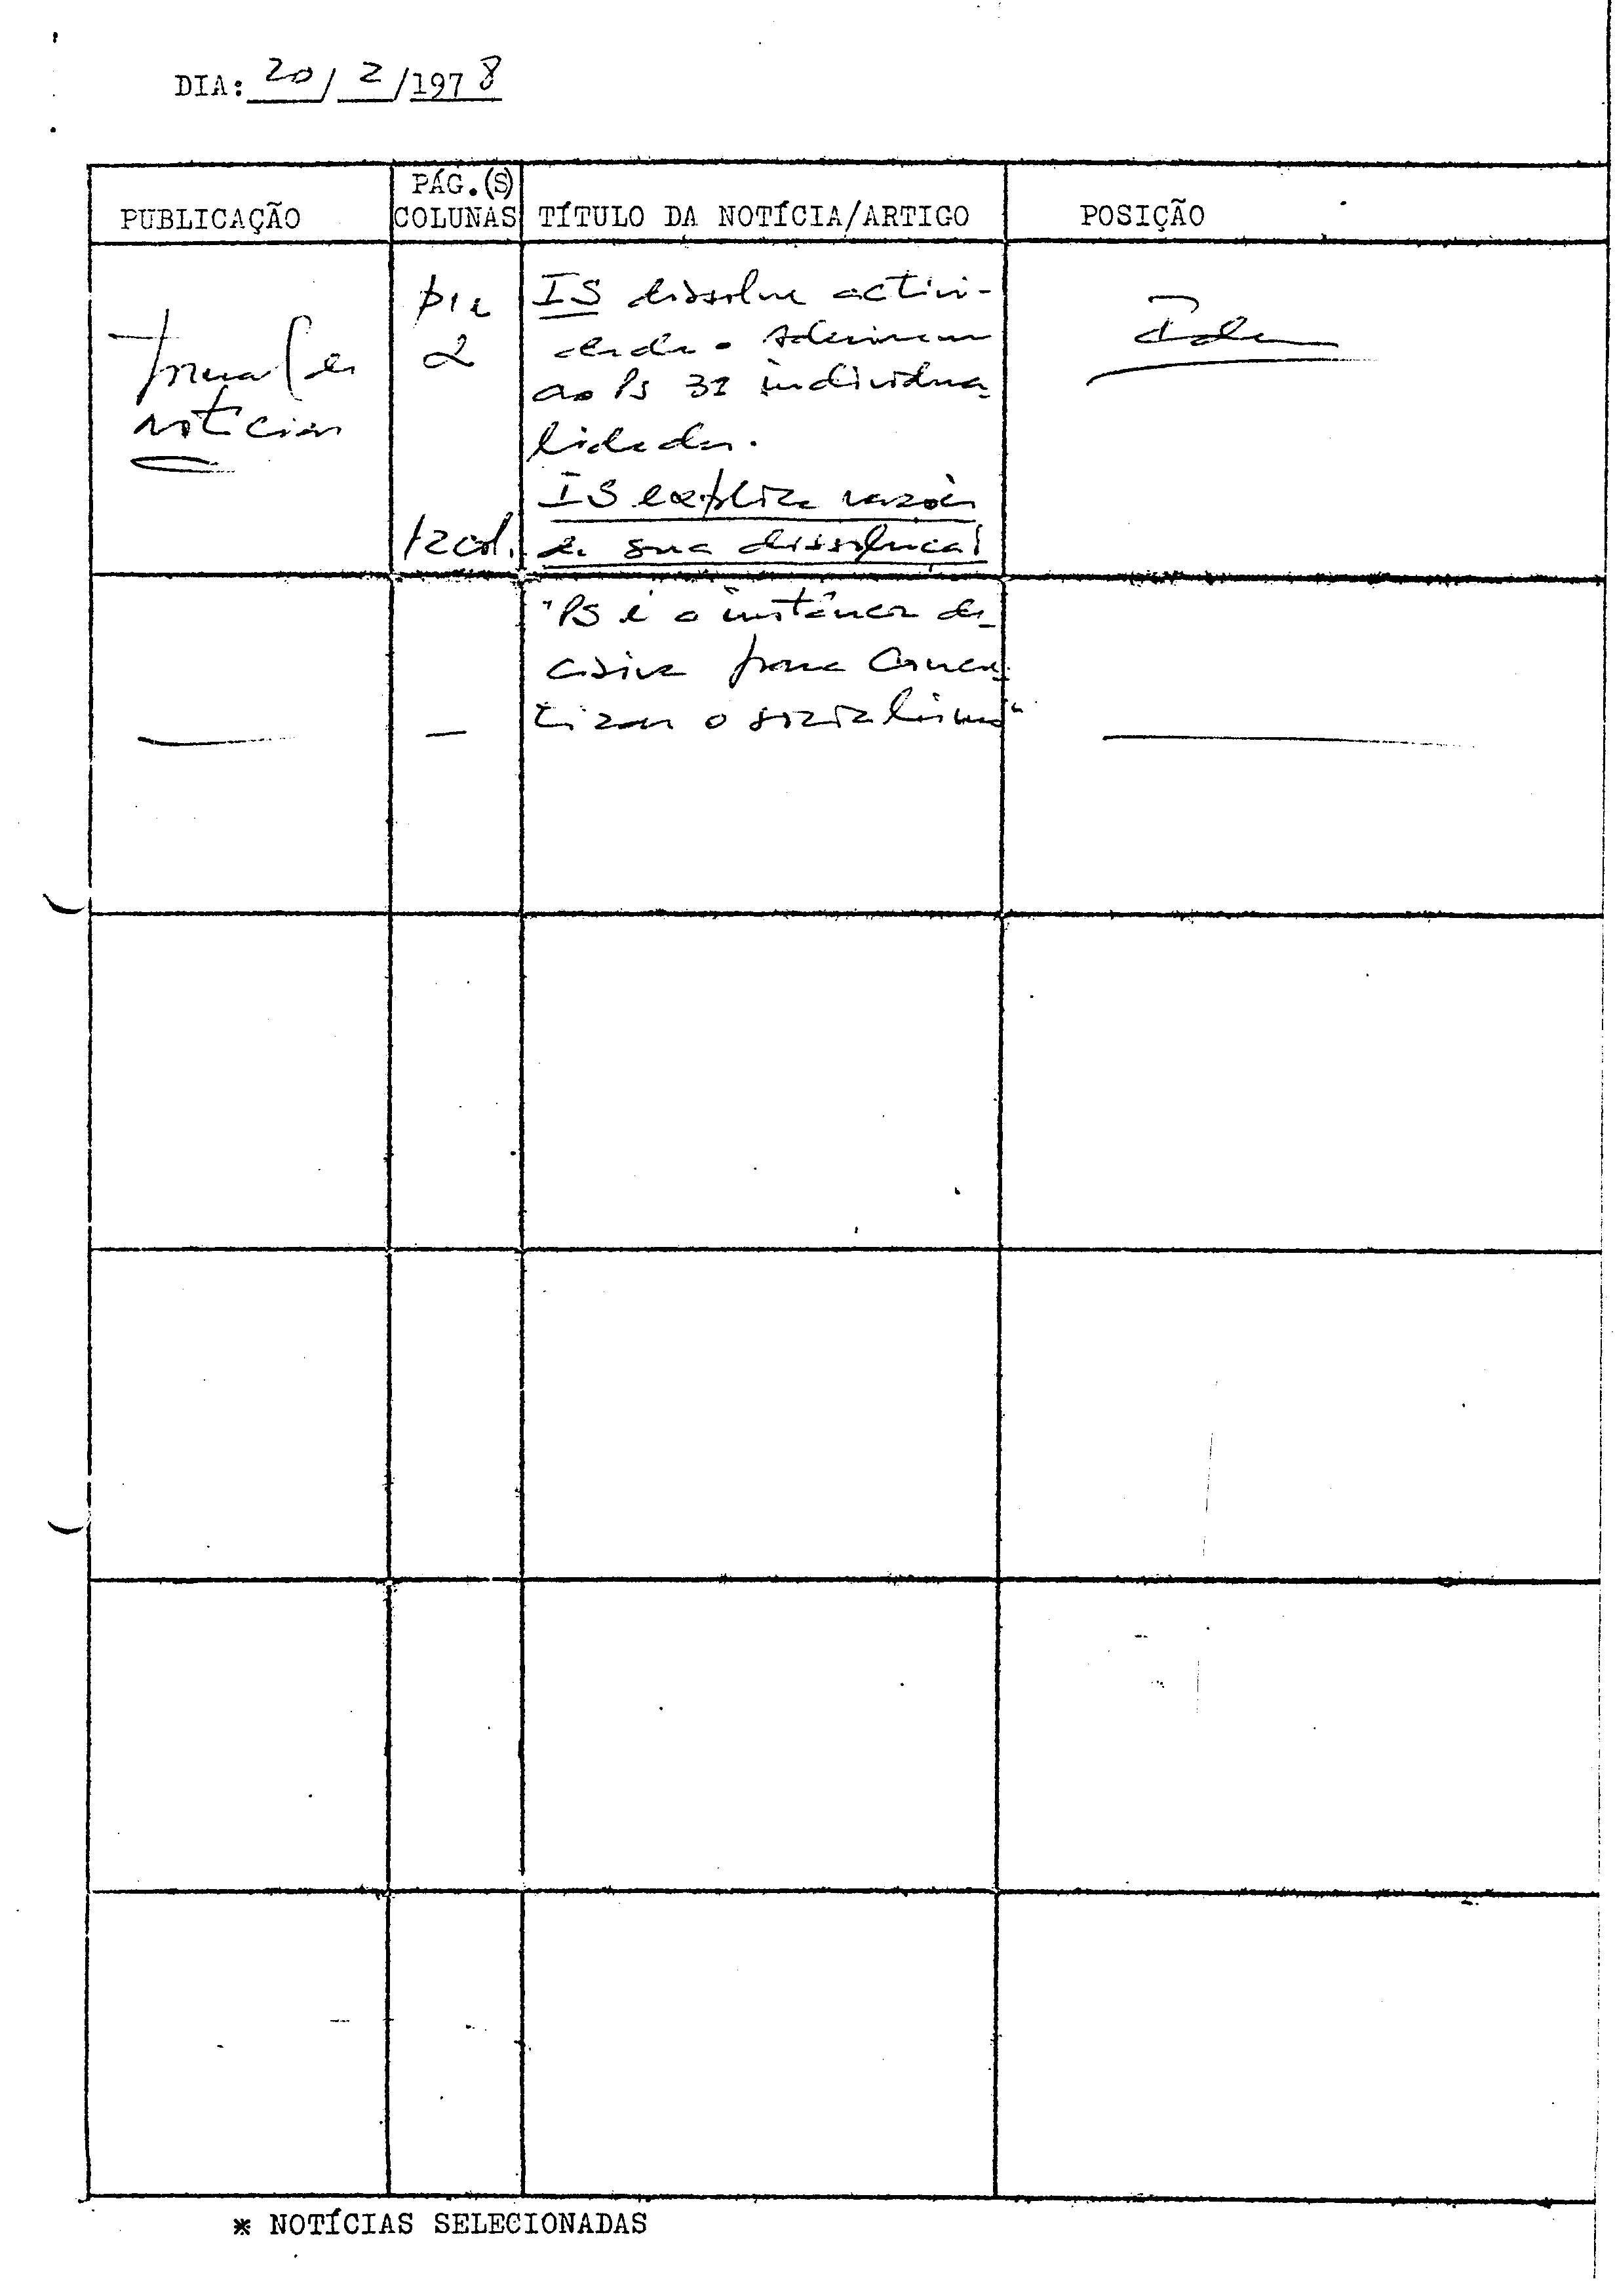 DIA: 20/2/1978
PUBLICAÇÃO
PÁG.(S)
COLUNAS
TÍTULO DA NOTÍCIA/ARTIGO
POSIÇÃO
Jornal de
notícias
2
IS dissolve activi-
dade. Aderiram
ao PS 32 individua-
lidades.
IS explica razões
da sua dissolução
"PS é a instância de-
cisiva para concre-
tizar o socialismo"
Idem
* NOTÍCIAS SELECIONADAS